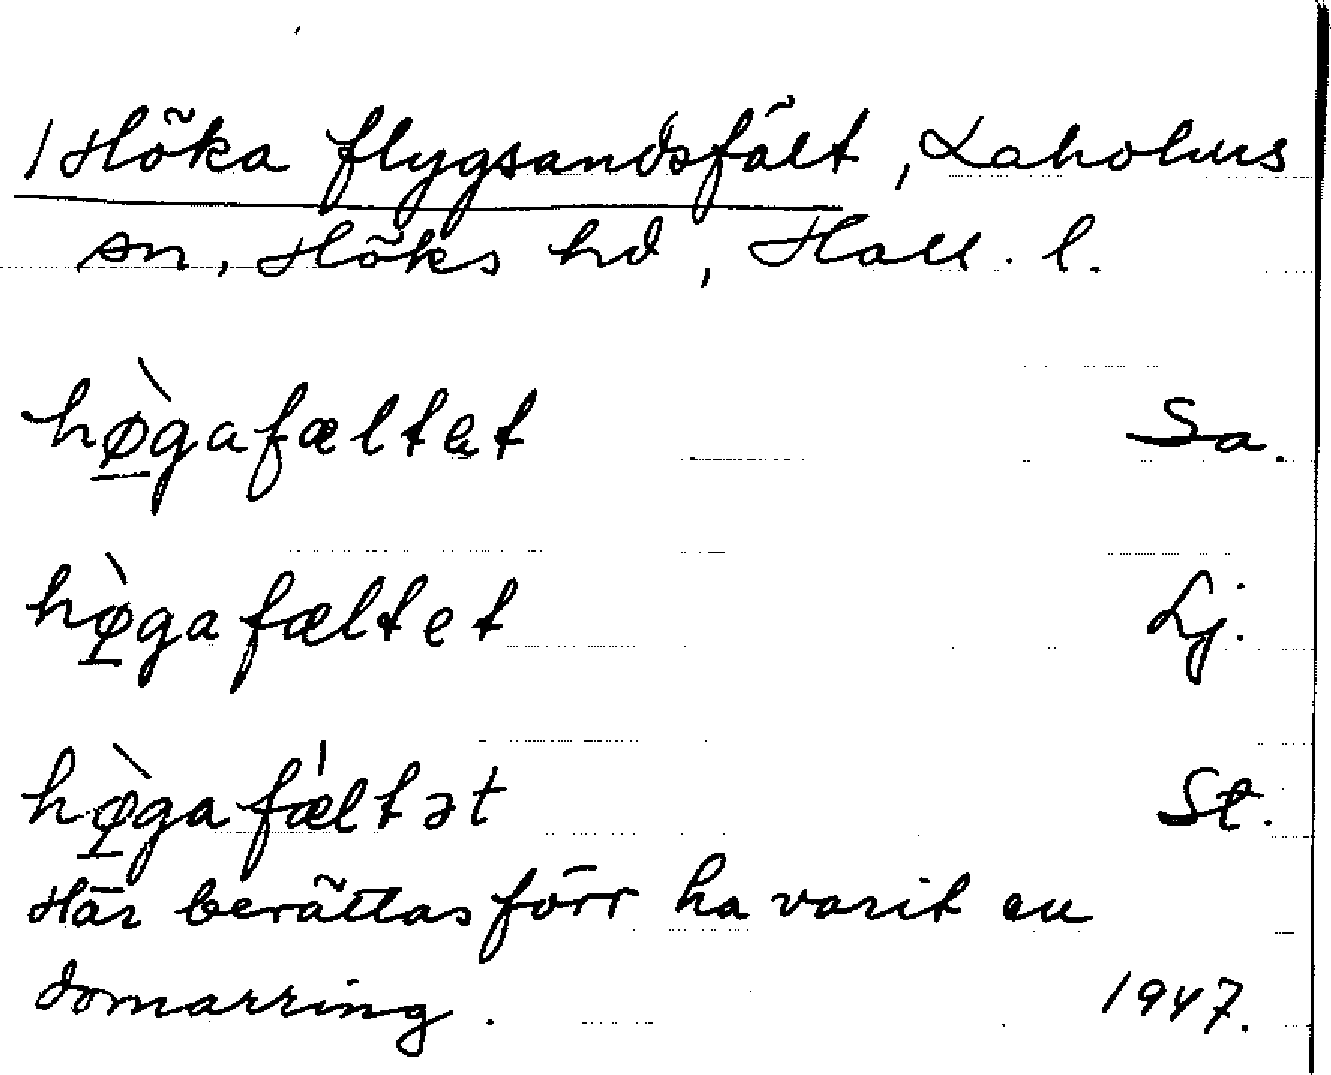 / Höka flygsandsfält, Laholms
sn, Höks hd, Hall. l.
hø̠̀gafæltet Sa.
hø̠̀gafæltet Lj.
hø̠̀gafæ̍ltət St.
Här berättas förr ha varit en
domarring. 1947.